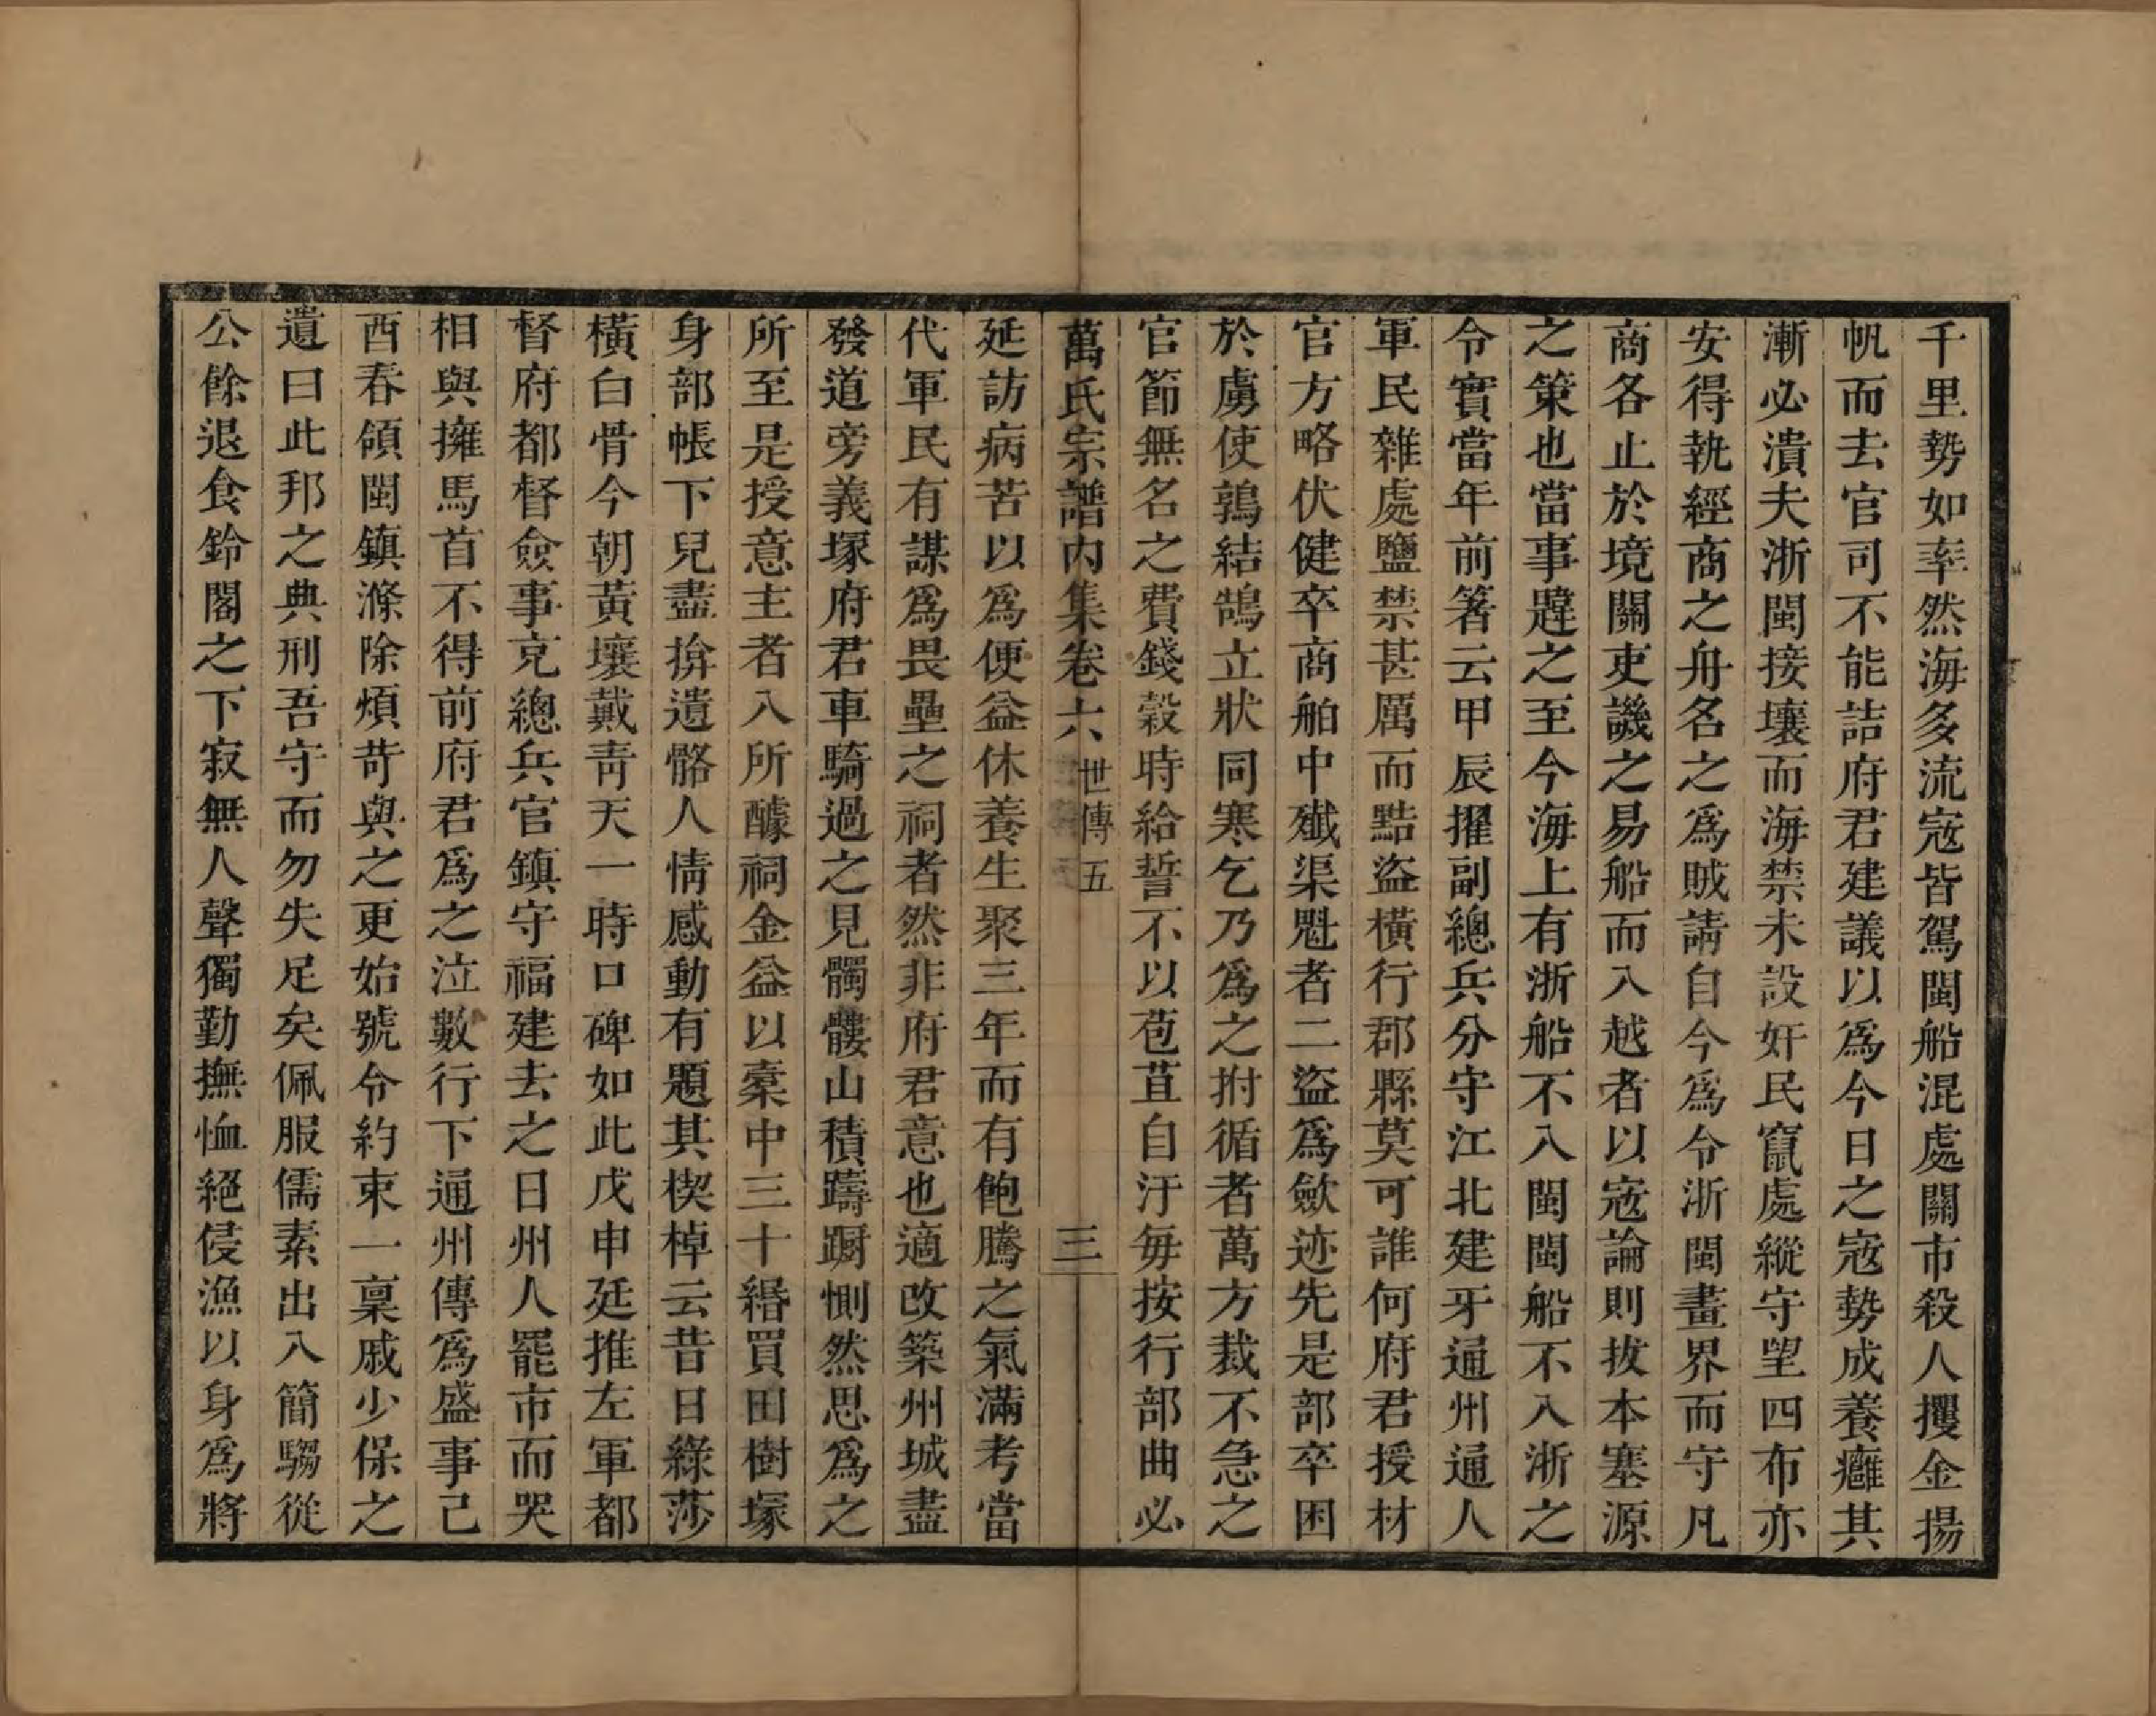 千里勢如率然海多流寇皆駕閩船混處關市殺人攫金揚
帆而去官司不能詰府君建議以爲今日之寇勢成養癰其
漸必潰夫浙閩接壤而海禁未設奸民竄處縱守望四布亦
安得執經商之舟名之爲賊請自今爲令浙閩畫界而守凡
商各止於境關吏譏之易船而入越者以寇論則拔本塞源
之策也當事韙之至今海上有浙船不入閩閩船不入浙之
令實當年前箸云甲辰擢副總兵分守江北建牙通州通人
軍民雜處鹽禁甚厲而黠盜橫行郡縣莫可誰何府君授材
官方略伏健卒商舶中殲渠魁者二盜爲歛迹先是部卒困
於虜使鶉結鵠立狀同寒乞乃爲之拊循者萬方裁不急之
官節無名之費錢穀時給誓不以苞苴自汙每按行部曲必
萬氏宗譜內集卷六 世傳五 三
延訪病苦以爲便益休養生聚三年而有飽騰之氣滿考當
代軍民有謀爲畏壘之祠者然非府君意也適改築州城盡
發道旁義塚府君車騎過之見髑髏山積躊躕惻然思爲之
所至是授意主者入所醵祠金益以橐中三十緡買田樹塚
身部帳下兒盡揜遺骼人情感動有題其楔棹云昔日綠莎
橫白骨今朝黃壤戴靑天一時口碑如此戊申廷推左軍都
督府都督僉事充總兵官鎮守福建去之日州人罷市而哭
相與擁馬首不得前府君爲之泣數行下通州傳爲盛事己
酉春領閩鎮滌除煩苛與之更始號令約束一稟戚少保之
遺曰此邦之典刑吾守而勿失足矣佩服儒素出入簡騶從
公餘退食鈴閣之下寂無人聲獨勤撫恤絕侵漁以身爲將